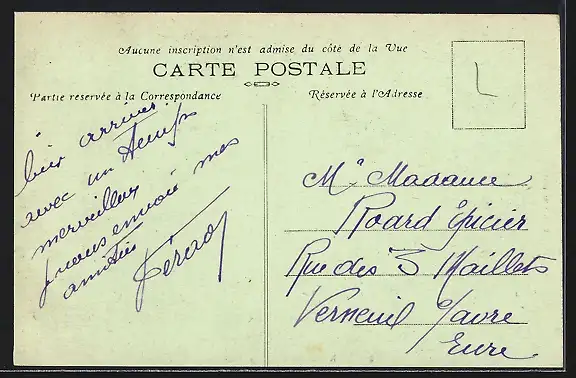 Aucune inscription n'est admise du côté de la Vue
CARTE POSTALE
Partie reservée à la Correspondance
Réservée à l'Adresse
bien arrivés
avec un temps
merveilleux
vous envoie mes
amitiés
Mr Madame
Roard Epicier
Rue des 3 Maillets
Verneuil s/avre
Eure